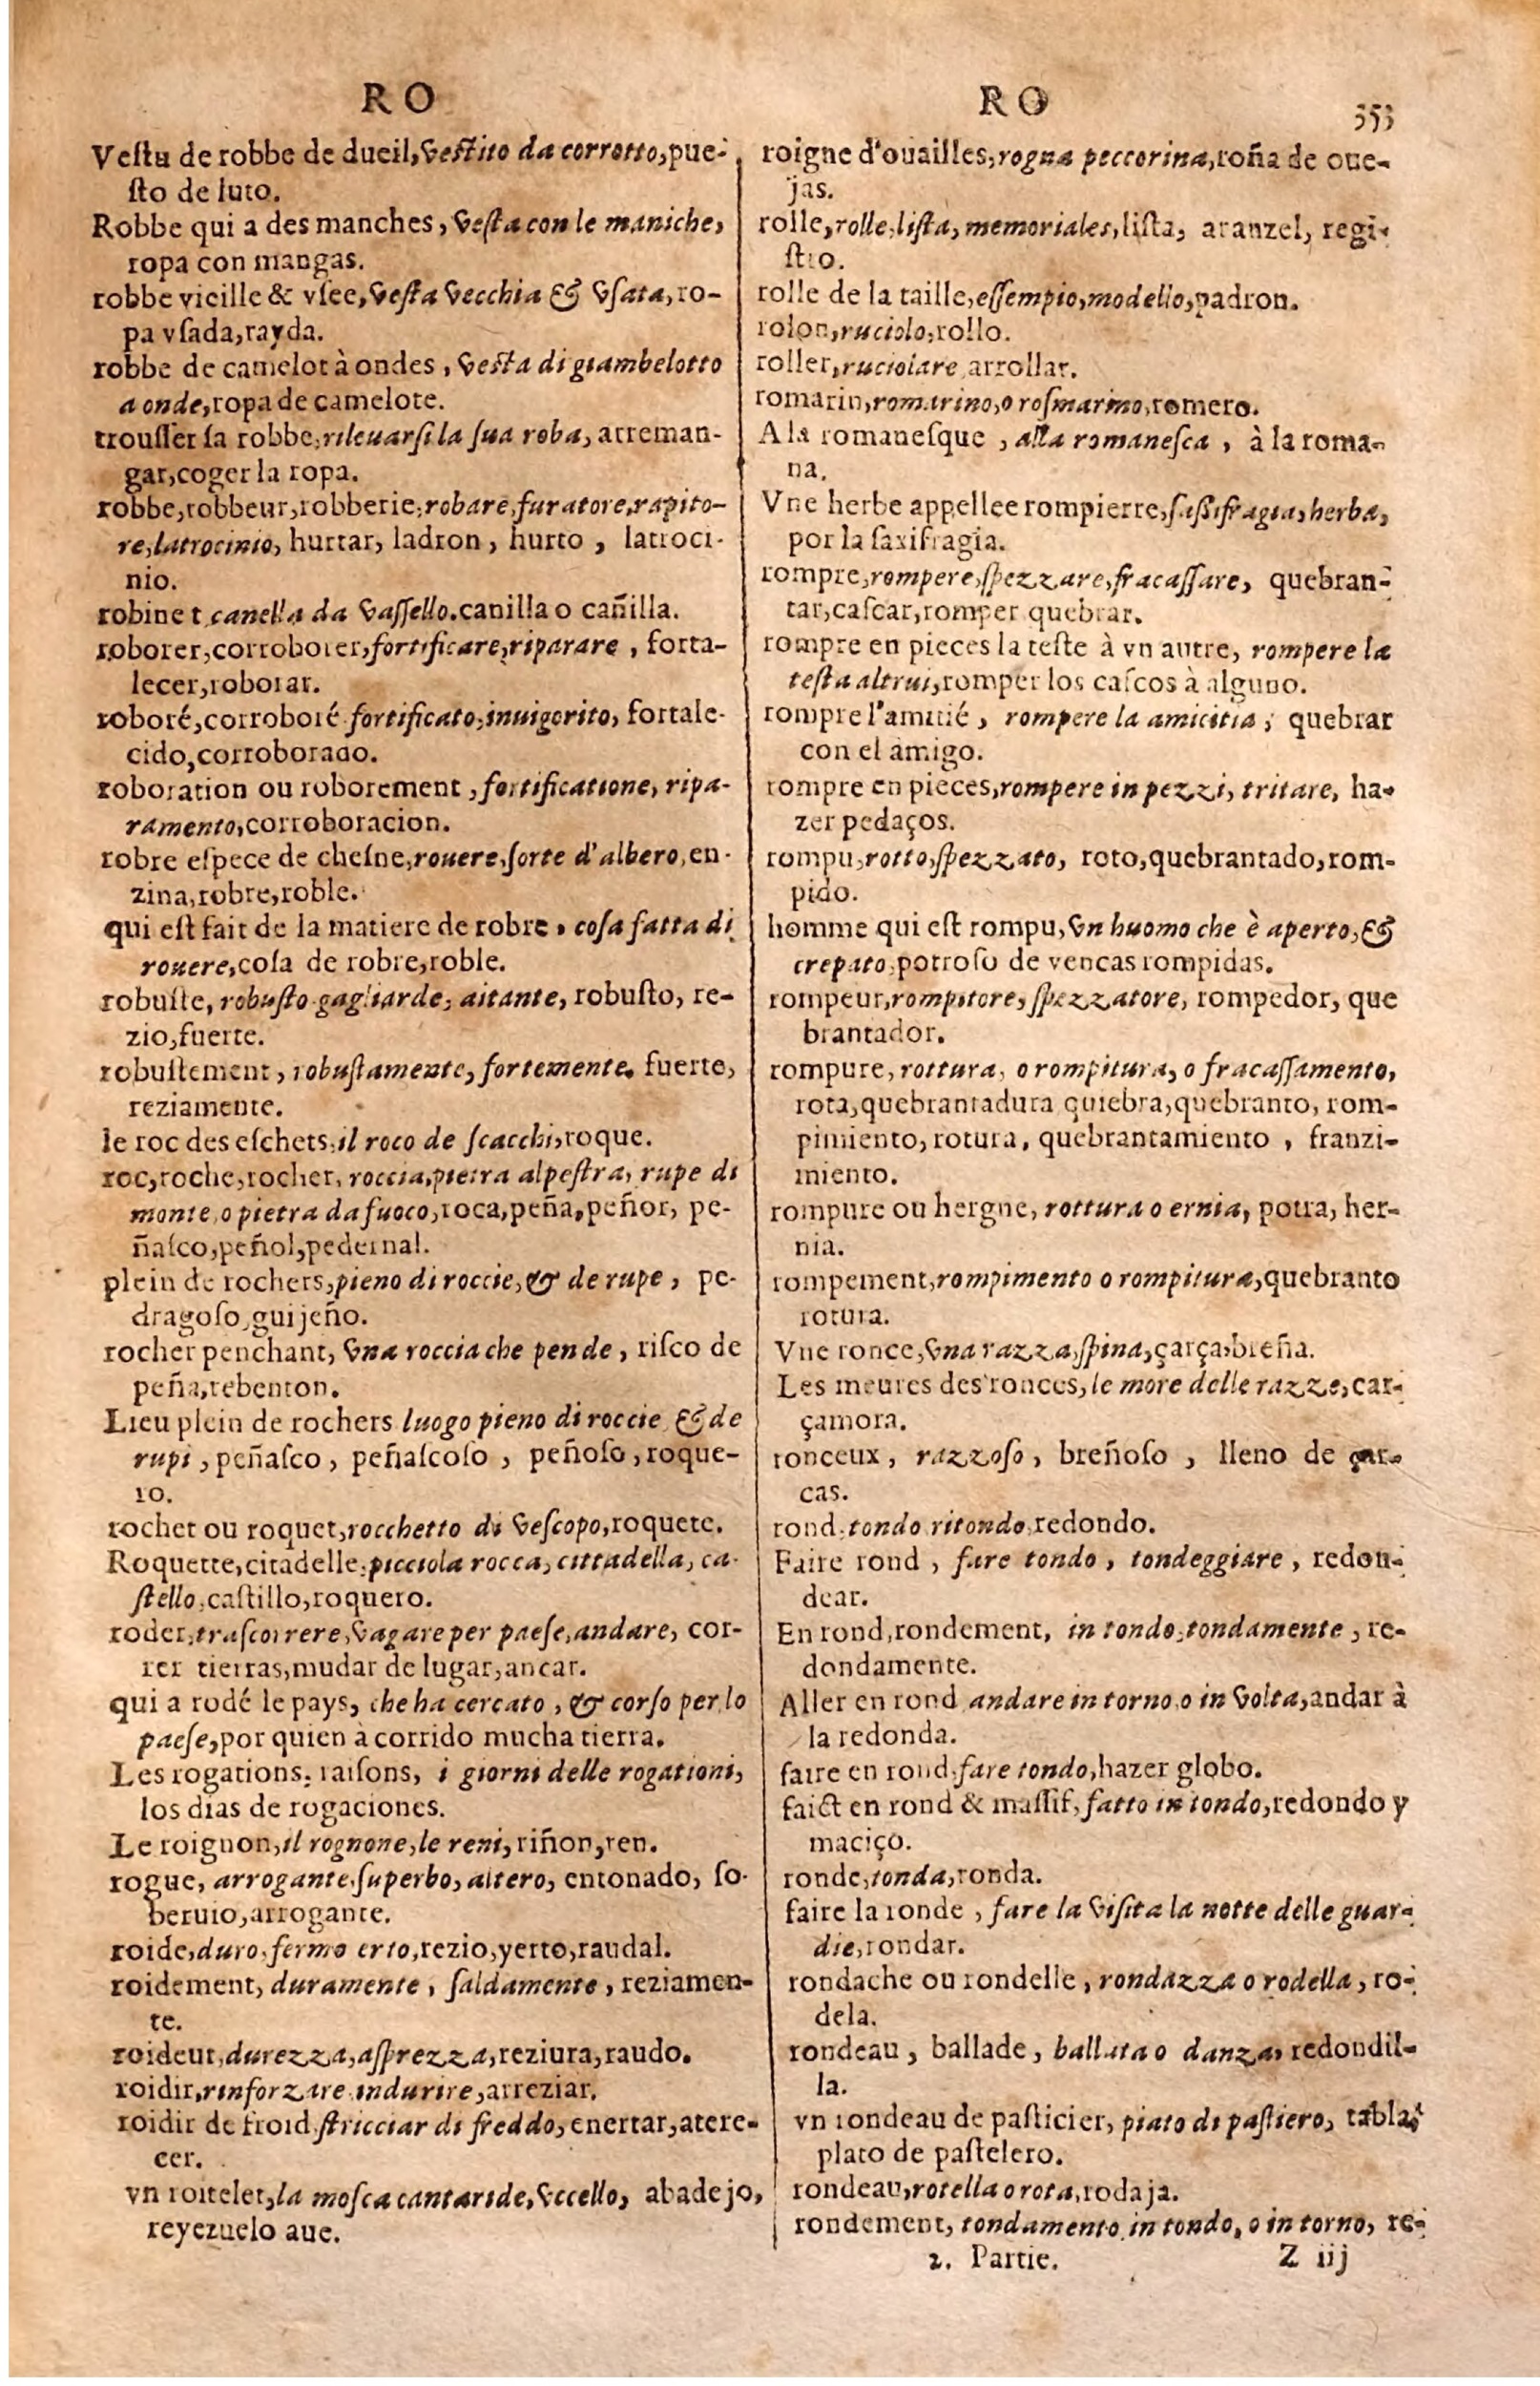 RO
Veſtu de robbe de dueil, veſtito da corrotto, pue-
ſto de luto.
Robbe qui a des manches, veſta con le maniche,
ropa con mangas.
robbe vieille & vſee, veſta vecchia & vſata, ro-
pa vſada, rayda.
robbe de camelot à ondes, veſta di giambelotto
a onde, ropa de camelote.
trouſſer ſa robbe, rileuarſi la ſua roba, arreman-
gar, coger la ropa.
robbe, robbeur, robberie, robare, furatore, rapito-
re, latrocinio, hurtar, ladron, hurto, latroci-
nio.
robinet canella da vaſſello. canilla o cañilla.
roborer, corroborer, fortificare, riparare, forta-
lecer, roborar.
roboré, corroboré fortificato, inuigorito, fortale-
cido, corroborado.
roboration ou roborement, fortificatione, ripa-
ramento, corroboracion.
robre eſpece de cheſne, rouere, ſorte d'albero, en-
zina, robre, roble.
qui eſt fait de la matiere de robre, coſa fatta di
rouere, coſa de robre, roble.
robuſte, robuſto gagliarde, aitante, robuſto, re-
zio, fuerte.
robuſtement, robuſtamente, fortemente. fuerte,
reziamente.
le roc des eſchets, il roco de ſcacchi, roque.
roc, roche, rocher, roccia, pietra alpeſtra, rupe di
monte, o pietra da fuoco, roca, peña, peñor, pe-
ñaſco, peñol, pedernal.
plein de rochers, pieno di roccie, & de rupe, pe-
dragoſo, guijeño.
rocher penchant, vna roccia che pende, riſco de
peña, rebenton.
Lieu plein de rochers luogo pieno di roccie & de
rupi, peñaſco, peñaſcoſo, peñoſo, roque-
ro.
rochet ou roquet, rocchetto di veſcopo, roquete.
Roquette, citadelle, picciola rocca, cittadella, ca-
ſtello, caſtillo, roquero.
roder, traſcorrere, vagare per paeſe, andare, cor-
rer tierras, mudar de lugar, ancar.
qui a rodé le pays, che ha cercato, & corſo per lo
paeſe, por quien à corrido mucha tierra.
Les rogations, raiſons, i giorni delle rogationi,
los dias de rogaciones.
Le roignon, il rognone, le reni, riñon, ren.
rogue, arrogante, ſuperbo, altero, entonado, ſo-
beruio, arrogante.
roide, duro, fermo erto, rezio, yerto, raudal.
roidement, duramente, ſaldamente, reziamen-
te.
roideur, durezza, aſprezza, reziura, raudo.
roidir, rinforzare indurire, arreziar.
roidir de froid ſtricciar di freddo, enertar, atere-
cer.
vn roitelet, la moſca cantaride, vccello, abadejo,
reyezuelo aue.
RO
353
roigne d'ouailles, rogna peccorina, roña de oue-
jas.
rolle, rolle, liſta, memoriales, liſta, aranzel, regi-
ſtro.
rolle de la taille, eſſempio, modello, padron.
rolon, ruciolo, rollo.
roller, ruciolare, arrollar.
romarin, romarino, o roſmarino, romero.
A la romaneſque, alla romaneſca, à la roma-
na.
Vne herbe appellee rompierre, ſaſſifragia, herba,
por la ſaxifragia.
rompre, rompere, ſpezzare, fracaſſare, quebran-
tar, caſcar, romper quebrar.
rompre en pieces la teſte à vn autre, rompere la
teſta altrui, romper los caſcos à alguno.
rompre l'amitié, rompere la amicitia, quebrar
con el amigo.
rompre en pieces, rompere in pezzi, tritare, ha-
zer pedaços.
rompu, rotto, ſpezzato, roto, quebrantado, rom-
pido.
homme qui eſt rompu, vn huomo che è aperto, &
crepato, potroſo de vencas rompidas.
rompeur, rompitore, ſpezzatore, rompedor, que
brantador.
rompure, rottura, o rompitura, o fracaſſamento,
rota, quebrantadura quiebra, quebranto, rom-
pimiento, rotura, quebrantamiento, franzi-
miento.
rompure ou hergne, rottura o ernia, potra, her-
nia.
rompement, rompimento o rompitura, quebranto
rotura.
Vne ronce, vna razza, ſpina, çarça, breña.
Les meures des ronces, le more delle razze, çar-
çamora.
ronceux, razzoſo, breñoſo, lleno de çar-
cas.
rond, tondo ritondo, redondo.
Faire rond, fare tondo, tondeggiare, redon-
dear.
En rond, rondement, in tondo, tondamente, re-
dondamente.
Aller en rond andare in torno, o in volta, andar à
la redonda.
faire en rond, fare tondo, hazer globo.
faict en rond & maſſif, fatto in tondo, redondo y
maciço.
ronde, tonda, ronda.
faire la ronde, fare la viſita la notte delle guar-
die, rondar.
rondache ou rondelle, rondazza o rodella, ro-
dela.
rondeau, ballade, ballata o danza, redondil-
la.
vn rondeau de paſticier, piato di paſtiero, tabla,
plato de paſtelero.
rondeau, rotella o rota, rodaja.
rondement, tondamento in tondo, o in torno, re-
2. Partie. Z iij